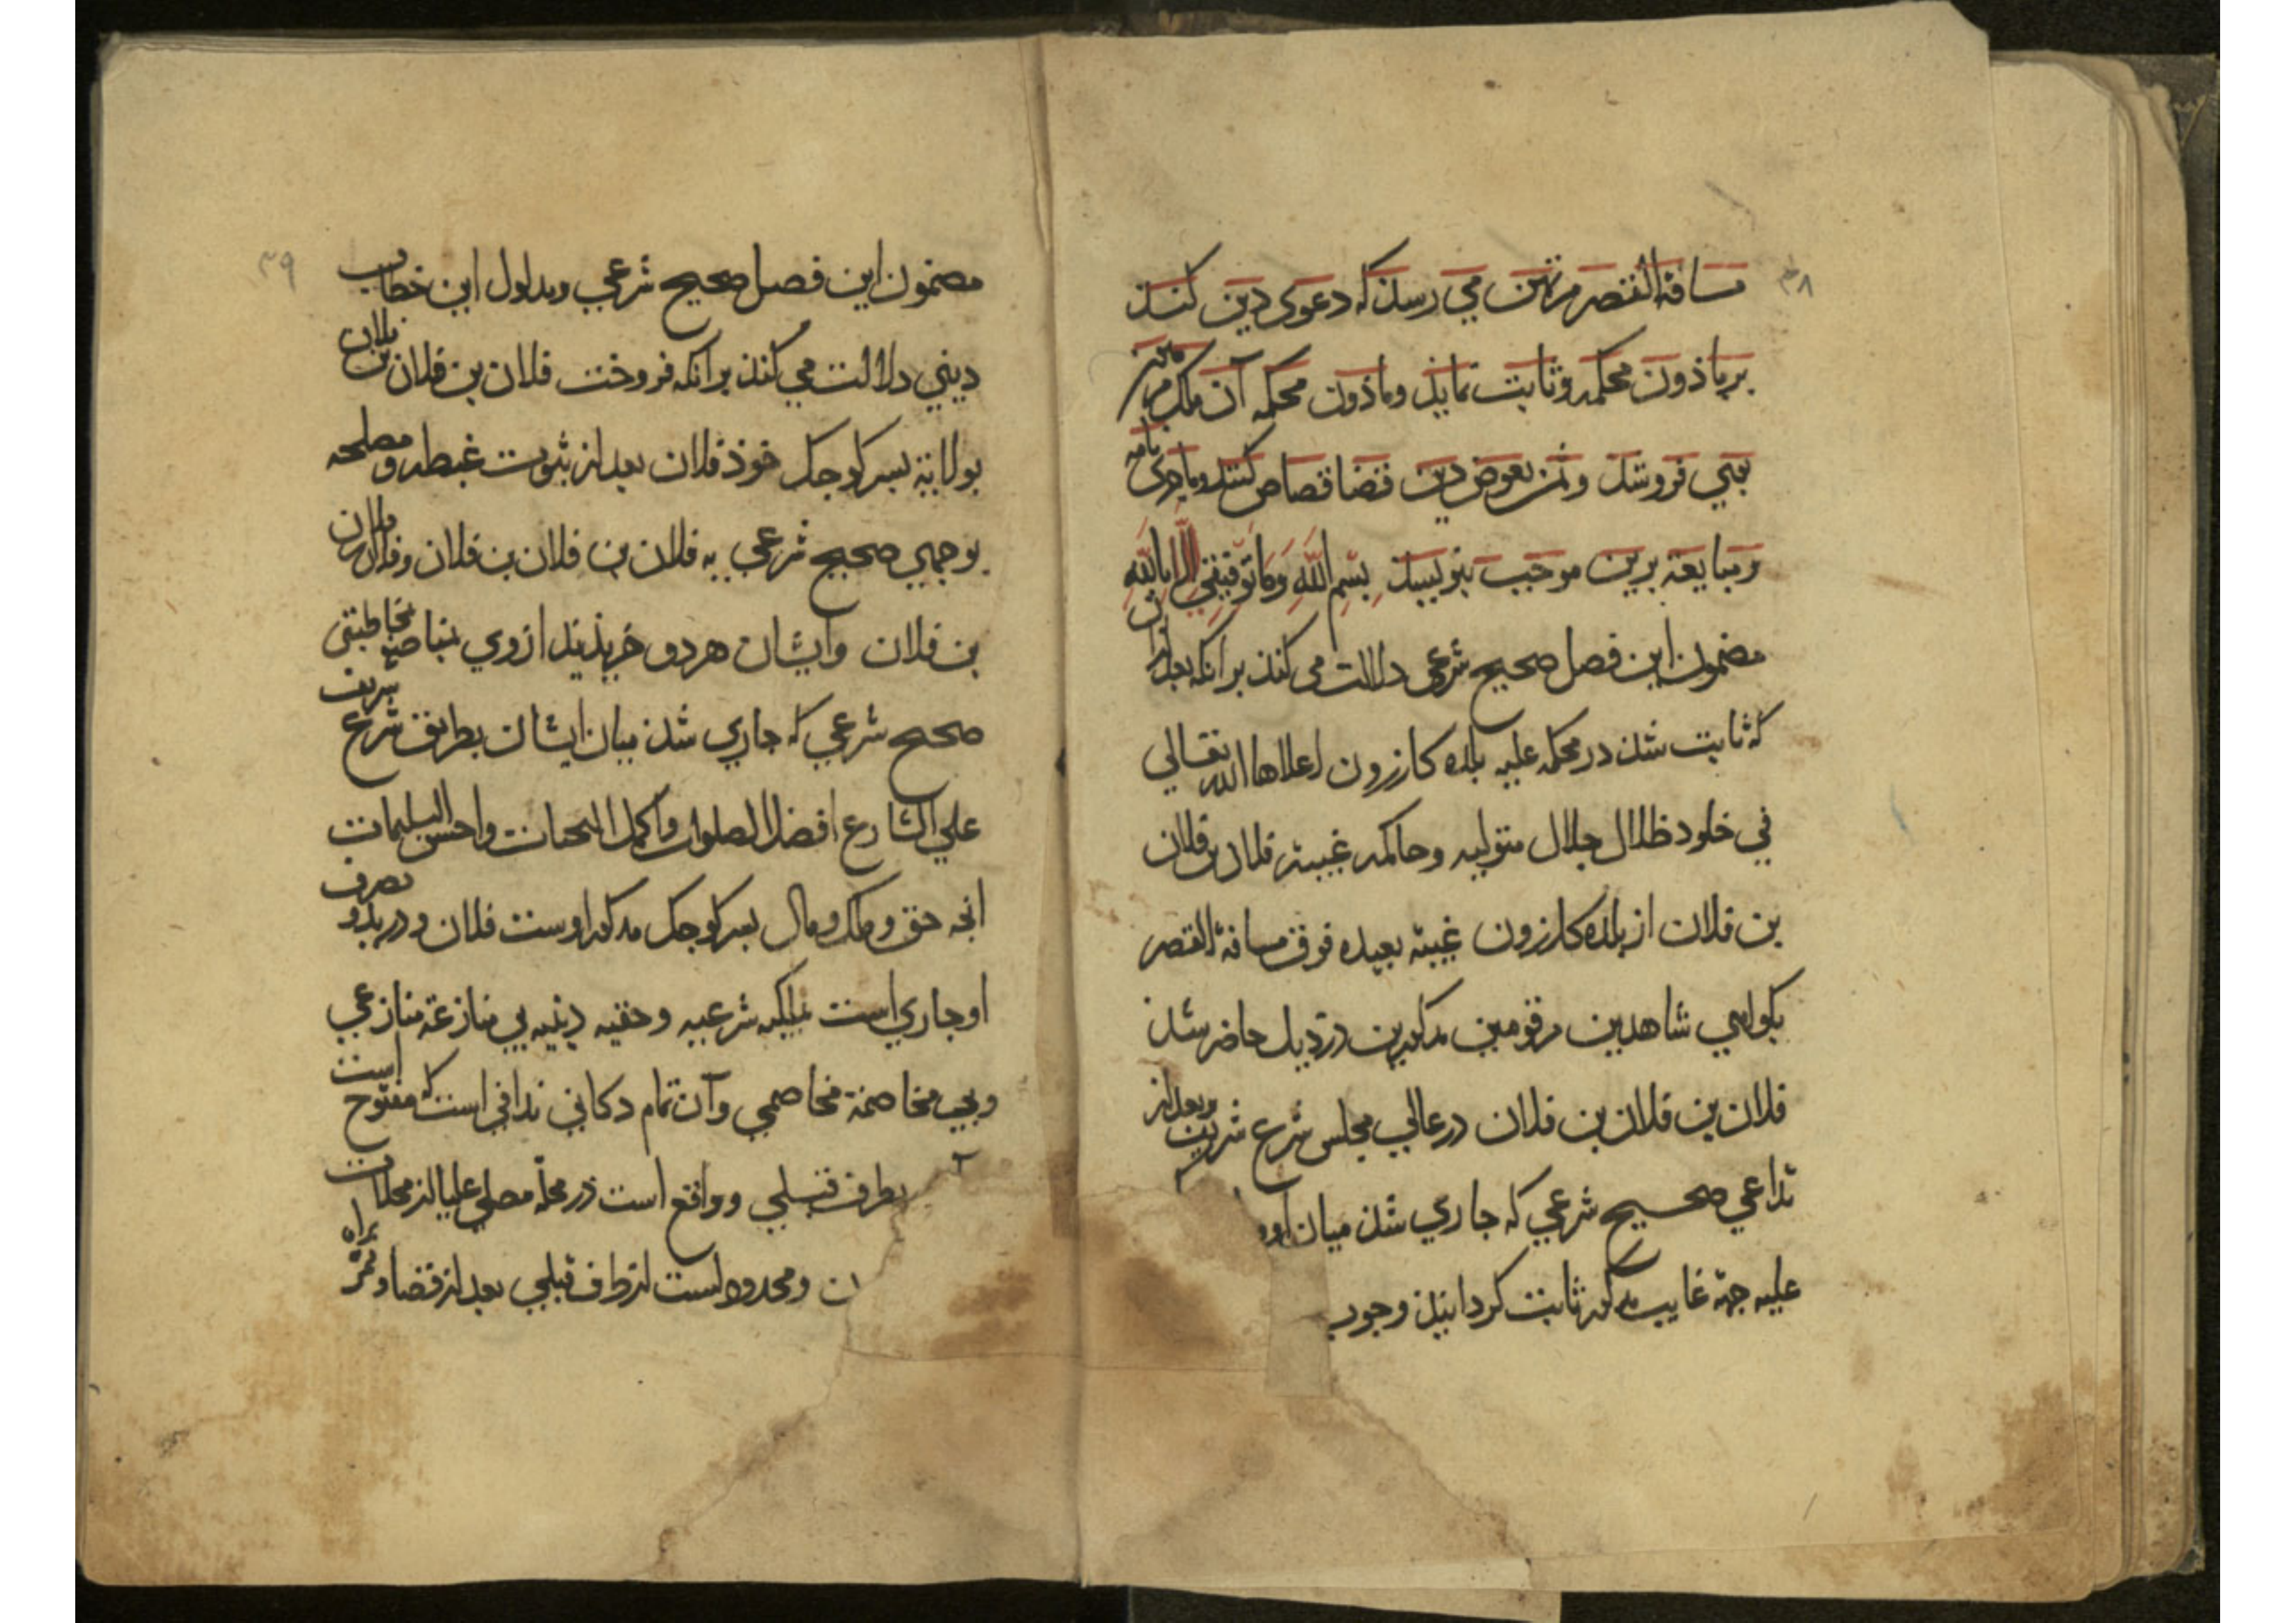 ۳۸
مسافة القصر مرتهن می رسذ که دعوی دین کنذ
بر ماذون محکمه و ثابت نمایذ و ماذون محکمه آن ملک مرهون
بوی فروشذ و ثمن بعوض دین قضا قصاص کنند و ماجری نامه
و مبایعه برین موجب بنویسند بِسْمِ اللَّهِ وَمَا تَوْفِيقِي إِلَّا بِاللَّهِ
مضمون این فصل صحیح شرعی دلالت می کنذ بر انکه بعد از آن
که ثابت شذ در محکمه علیه بلده کازرون اعلاها الله تعالی
في خلود ظلال جلال متولیه و حاکمه غیبة فلان بن فلان
بن فلان از بلده کازرون غیبة بعیده فوق مسافة القصر
بکواهی شاهدین مرقومین مذکورین در ذیل حاضر شذ
فلان بن فلان بن فلان در عالي مجلس شرع شریف و بعد از
تداعي صحیح شرعي که جاري شذ میان او و
علیه جهة غایب مذکور ثابت کردانیذ وجوب
۳۹
مضمون این فصل صحیح شرعي و مدلول این خطاب
دیني دلالت مي کنذ بر انکه فروخت فلان بن فلان بن فلان
بولایة پسر کوجک خوذ فلان بعد از ثبوت غبطه و مصلحه
بوجهي صحیح شرعي به فلان بن فلان بن فلان و فلان بن فلان
بن فلان و ایشان هر دو خریذند از وي بمناصفه مخاطبتی
صحیح شرعي که جاري شذ میان ایشان بطریق شرع شریف
علي الشارع افضل الصلوات و اکمل التحیات و احسن التسلیمات
انجه حق و ملک و مال پسر کوجک مذکور اوست فلان و در ید و تصرف
او جاري است بملکیه شرعیه و حقیه دینیه بي منازعة منازعي
و بي مخاصمة مخاصمي و آن تمام دکاني ندافي است که مفتوح است
بطرف قبلي و واقع است در محله مصلي علیا از محلات
ن و محدود است از طرف قبلي بعد از فضا و ممر براه